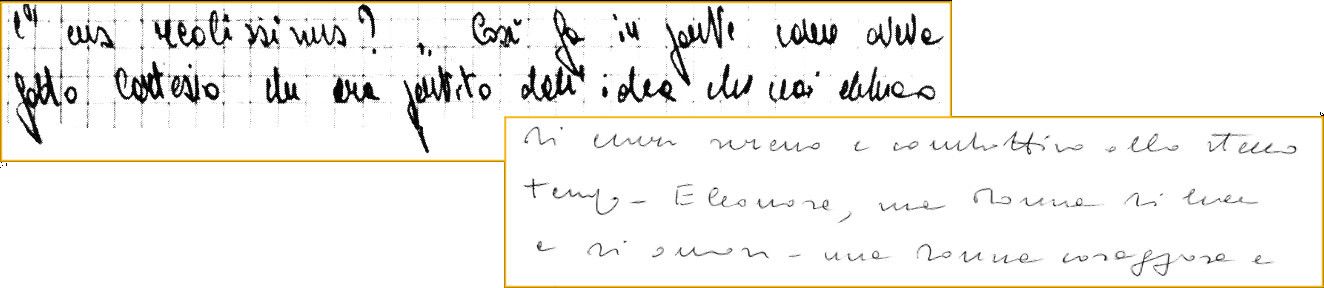 è" ens realissimus? „ Così fa in parte come aveva
fatto Cartesio che era partito dall'idea che noi abbiamo
di sereno e combattivo allo stesso
tempo - Eleonora, una donna di
e di amori - una donna coraggiosa e